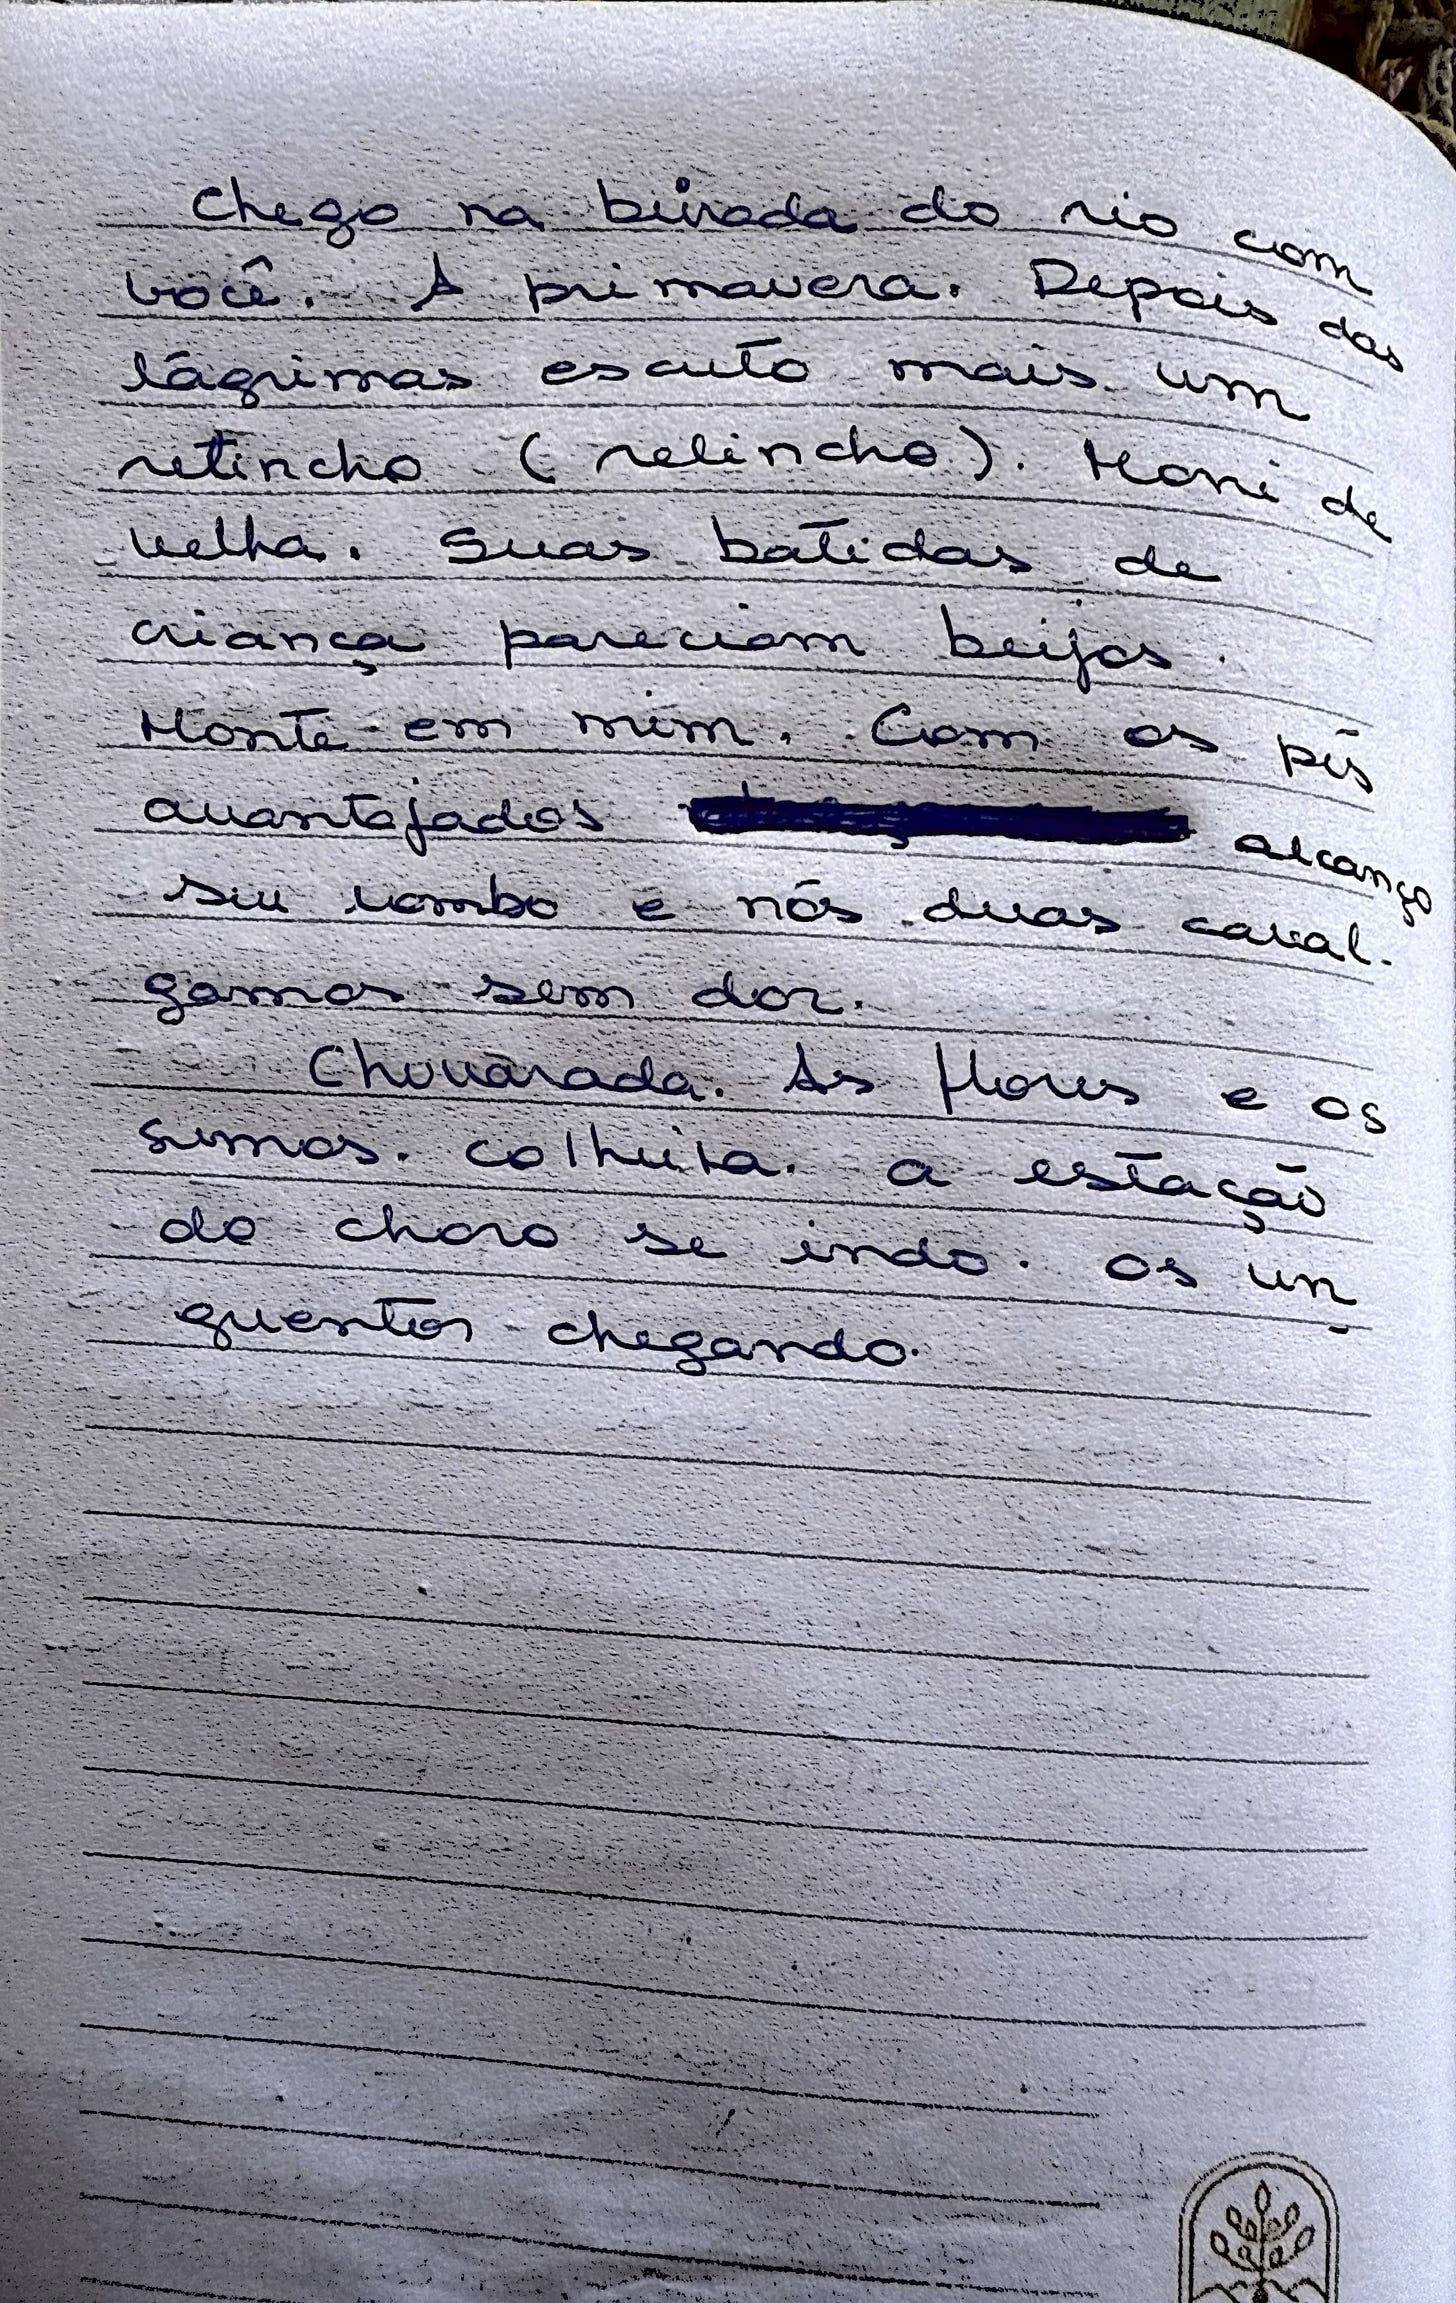 Chego na beirada do rio com
você. A primavera. Depois das
lágrimas escuto mais um
retincho (relincho). Morri de
velha. Suas batidas de
criança pareciam beijos.
Monte em mim. Com os pés
avantajados alcanço
seu lombo e nós duas caval-
gamos sem dor.
Chuvarada. As flores e os
sumos. colheita. a estação
do choro se indo. os un
guentos chegando.